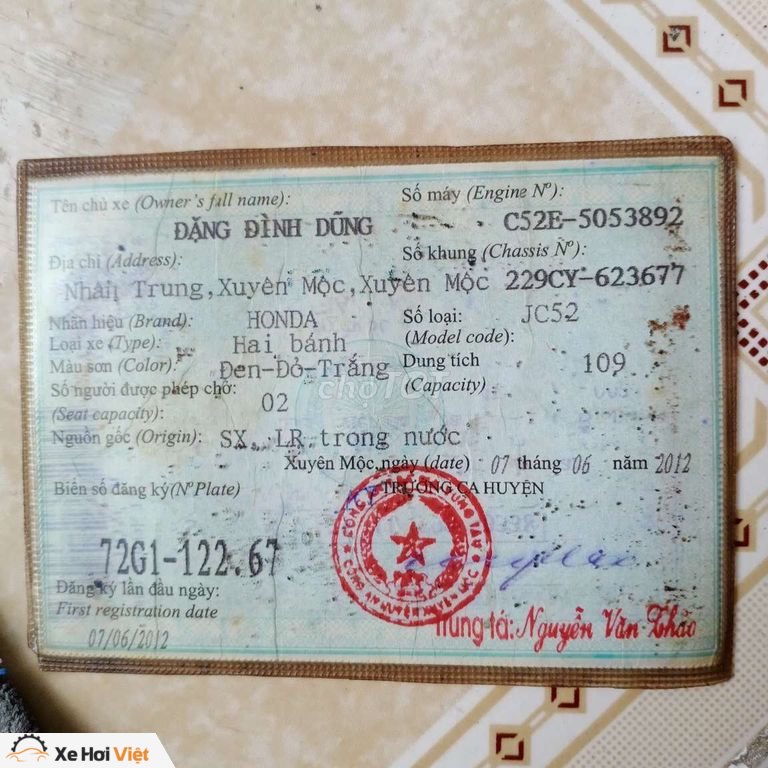 Tên chủ xe (Owner's full name):
ĐẶNG ĐÌNH DŨNG
Địa chỉ (Address):
Nhân Trung, Xuyên Mộc, Xuyên Mộc
Nhãn hiệu (Brand): HONDA
Loại xe (Type): Hai bánh
Màu sơn (Color): Đen-Đỏ-Trắng
Số người được phép chở:
(Seat capacity): 02
Nguồn gốc (Origin): SX, LR trong nước
Số máy (Engine Nº):
C52E-5053892
Số khung (Chassis Nº):
229CY-623677
Số loại: JC52
(Model code):
Dung tích 109
(Capacity)
chợTỐT
Xuyên Mộc, ngày (date) 07 tháng 06 năm 2012
TRƯỞNG CA HUYỆN
Biển số đăng ký (Nº Plate)
72G1-122.67
Đăng ký lần đầu ngày:
First registration date
07/06/2012
CÔNG AN HUYỆN XUYÊN MỘC
Trung tá: Nguyễn Văn Thảo
Xe Hơi Việt